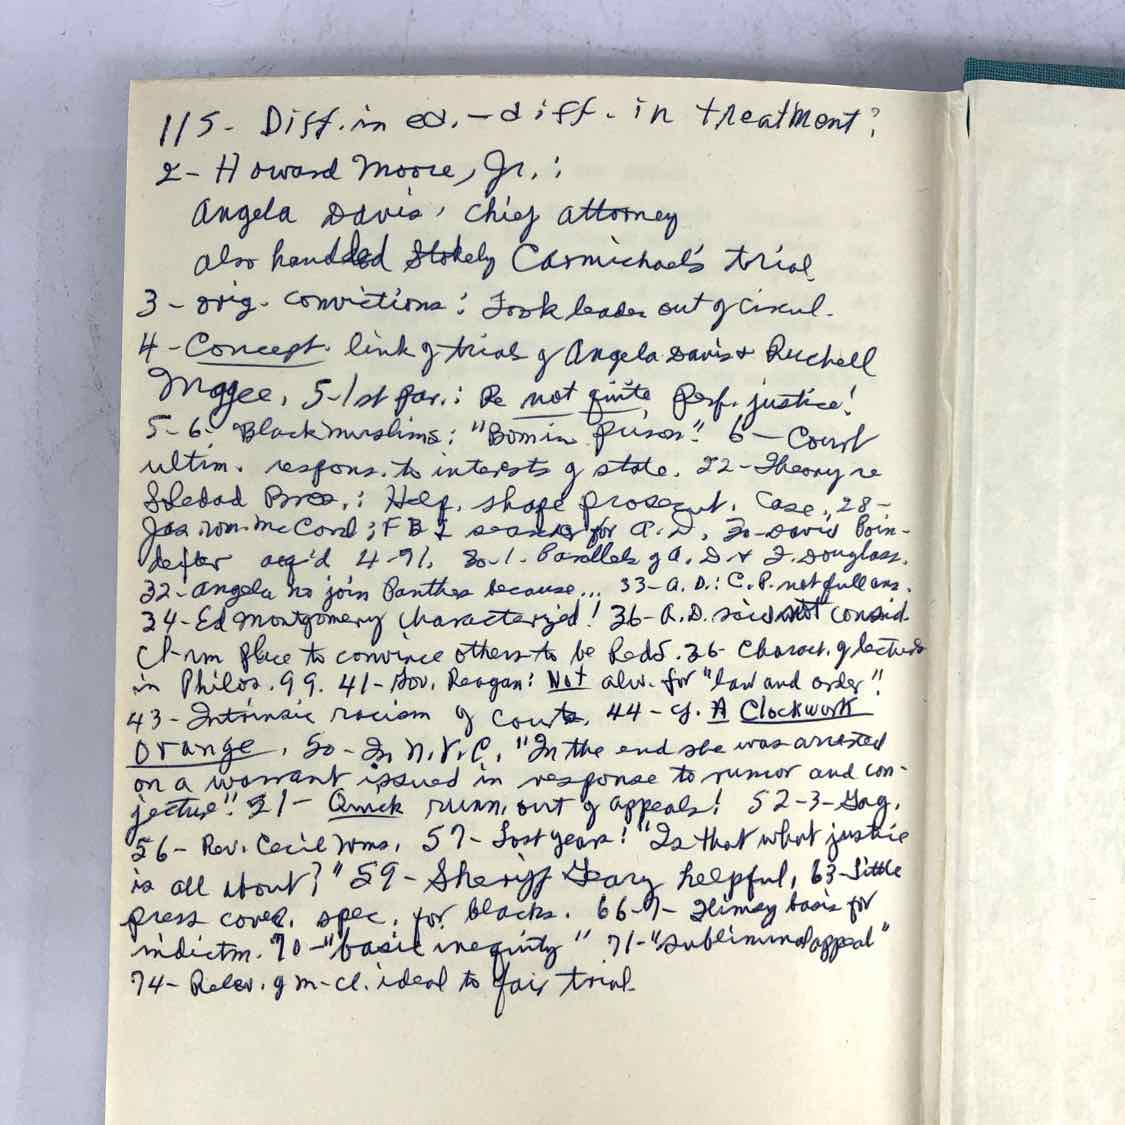 115- Diff. in ed. - diff. in treatment?
2- Howard Moore, Jr.:
Angela Davis' chief attorney
also handled Stokely Carmichael's trial
3- orig. convictions: Took leader out of circul.
4- Concept. link of trials of Angela Davis & Ruchell
Magee. 5-1st par.: Re not quite perf. justice!
5-6- Black Muslims: "Born in prison". 6- Court
ultim. respons. to interests of state. 22- Theory re
Soledad Bros.: Help shape prosecut. case. 28-
Jas. Wm. McCord; FBI search for A.D. 30- David Poin-
dexter acq'd 4-71. 30-1. Parallels of A.D. & F. Douglass.
32- Angela no join Panthers because... 33- A.D.: C.P. not full ans.
34- Ed Montgomery characterized! 36- A.D. said not consid.
cl-rm place to convince others to be Reds. 36- Charact. of lectures
in Philos. 99. 41- Gov. Reagan: Not alw. for "law and order"!
43- Intrinsic racism of courts. 44- cf. A Clockwork
Orange. 50- In N.Y.C. "In the end she was arrested
on a warrant issued in response to rumor and con-
jecture"! 51- Quick runn. out of appeals! 52-3- Gag.
56- Rev. Cecil Wms. 57- Lost years! "Is that what justice
is all about?" 59- Sheriff Geary helpful. 63- Little
press cover. spec. for blacks. 66-7- Flimsy basis for
indictm. 70- "basic inequity" 71- "subliminal appeal"
74- Relev. of m-cl. ideal to fair trial.